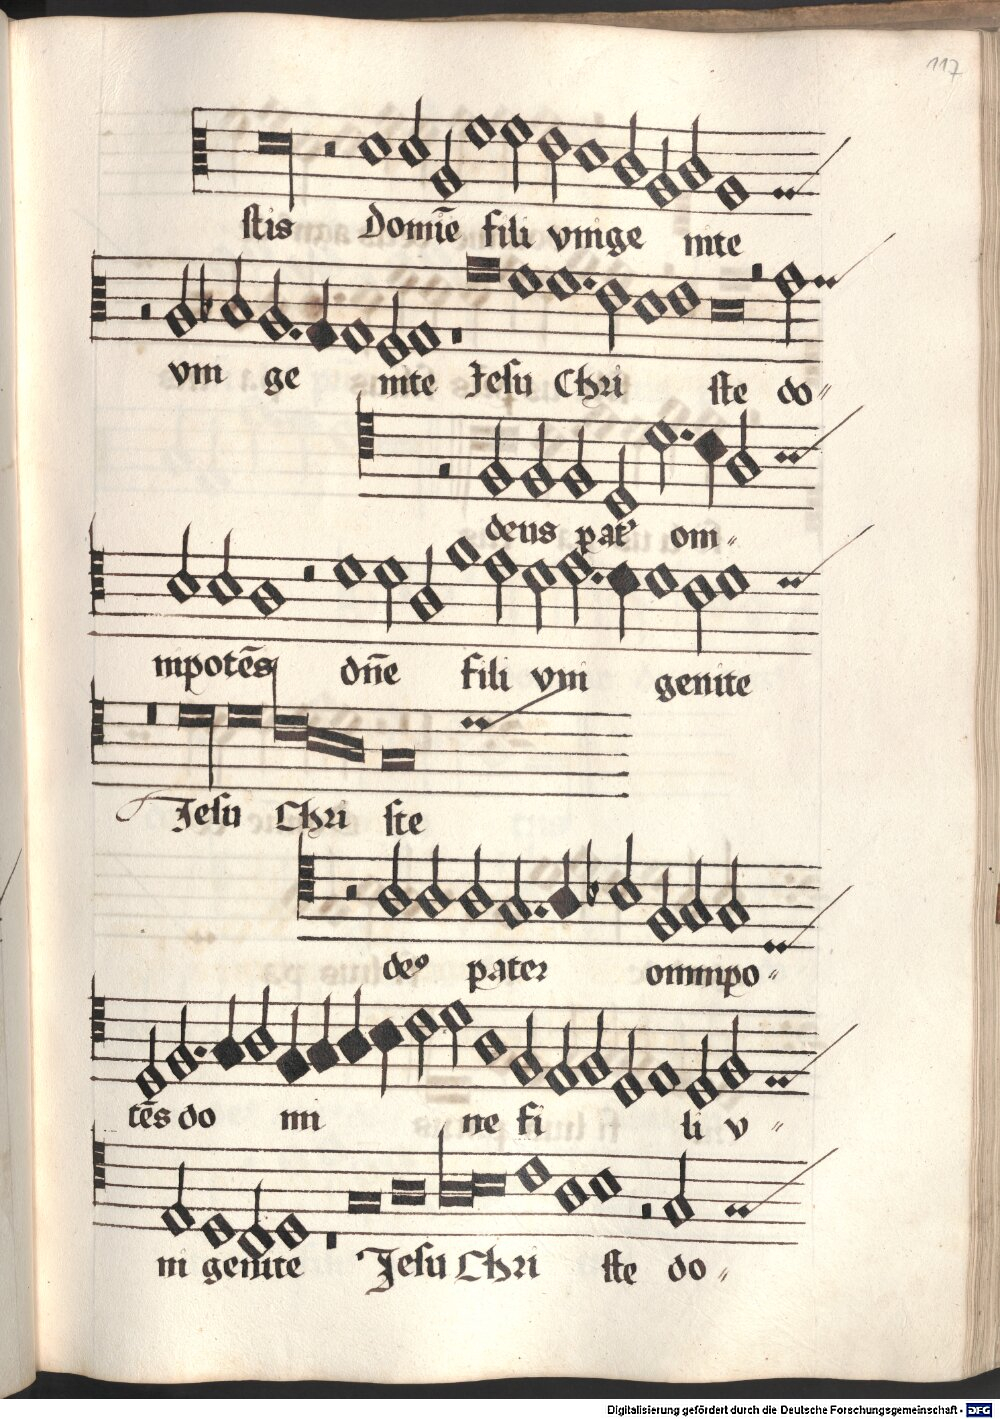 117
stis Domīe fili vnige nite
vni ge nite Jesu Chri ste do〃
deus pat' om〃
nipotēs dn̄e fili vni genite
Jesu Chri ste
deꝰ pater omnipo〃
tēs do mi ne fi li v〃
ni genite Jesu Chri ste do〃
Digitalisierung gefördert durch die Deutsche Forschungsgemeinschaft - DFG